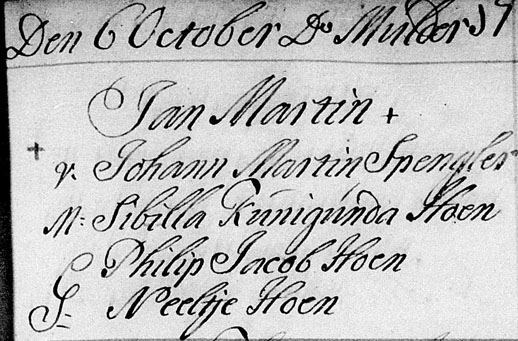 Den 6 October Ds Mulder 17
Jan Martin +
+ v. Johann Martin Spengler
M: Sibilla Kunigunda Hoen
Philip Jacob Hoen
G- Neeltje Hoen